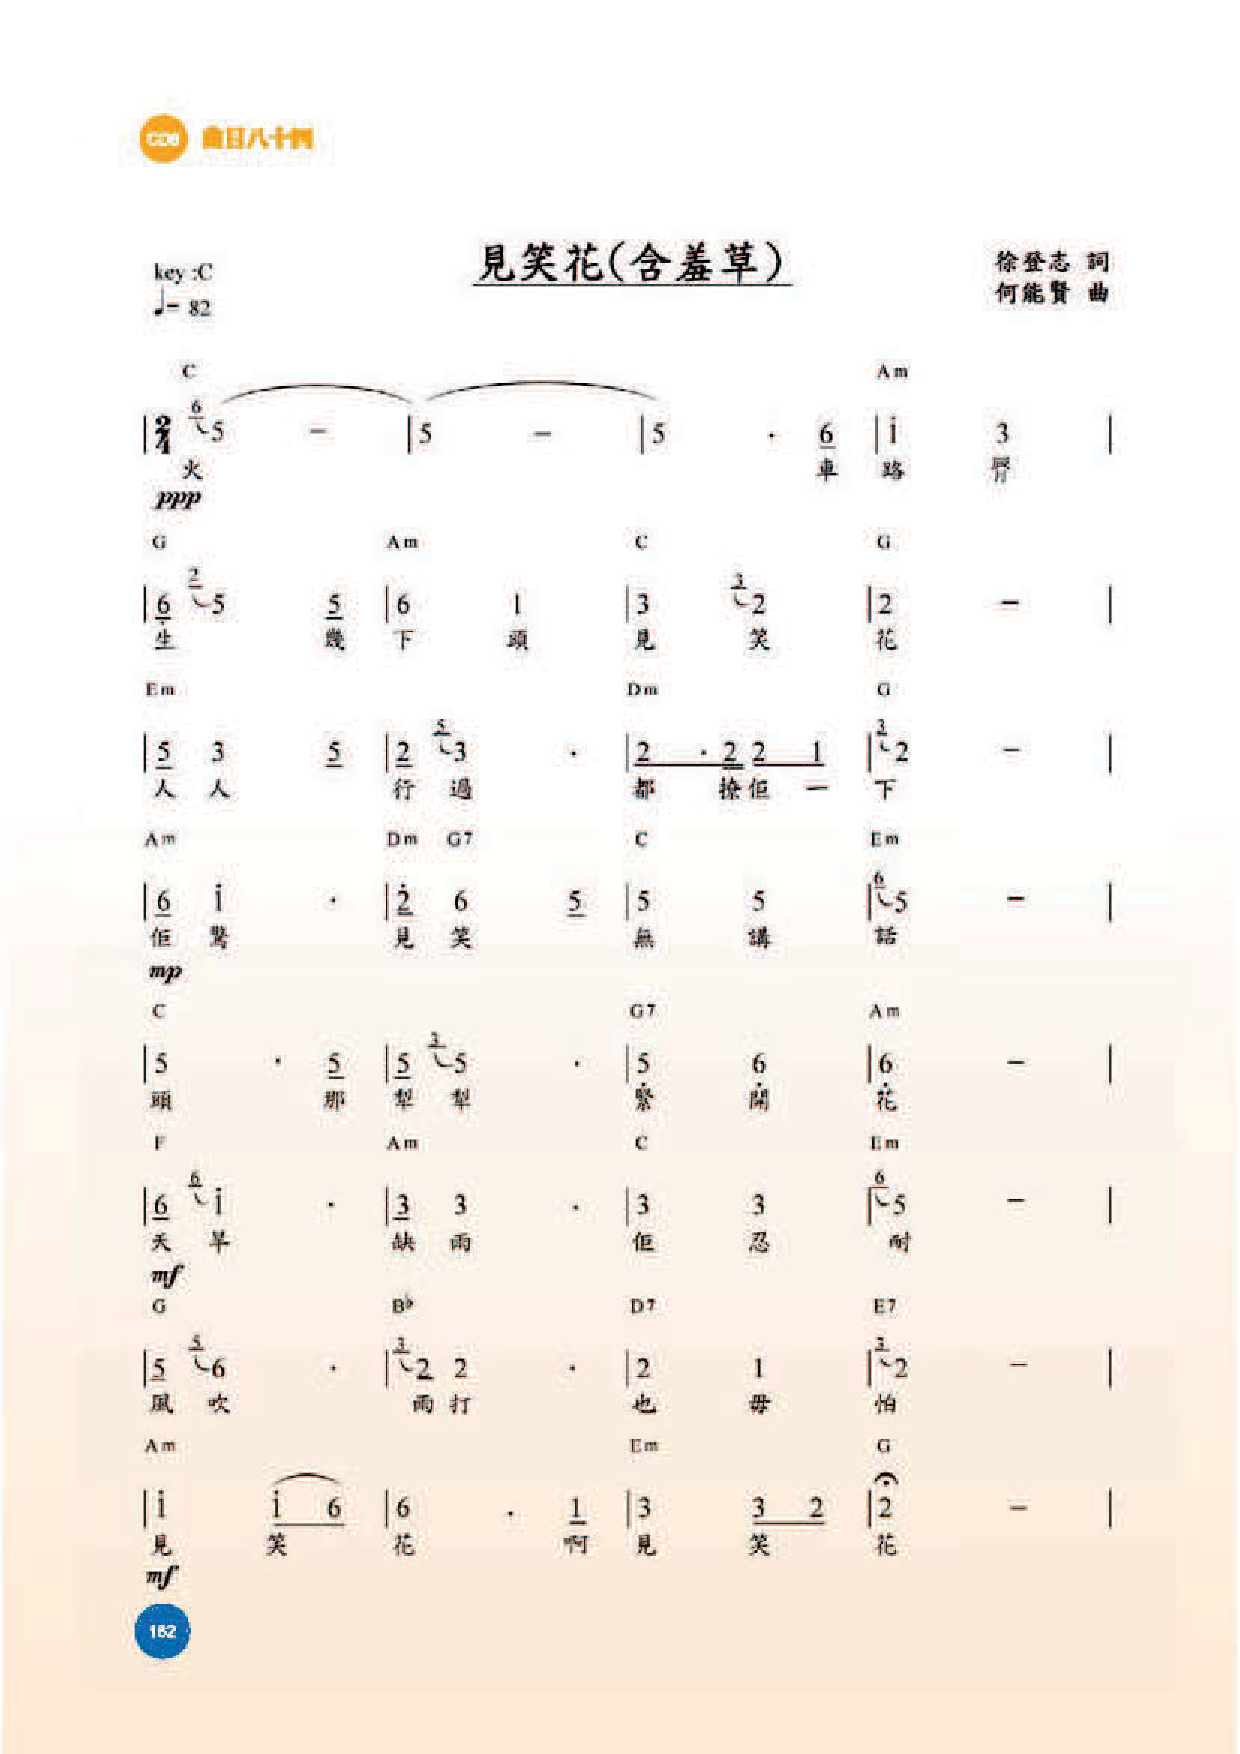 CD6 曲目八十四
見笑花(含羞草)
key :C
徐登志 詞
♩= 82
何能賢 曲
C Am
6 6
2/4 5 － |5 － |5 · 6 |i 3 |
火 車 路 脣
ppp
G Am C G
2 3
|6 5 5 |6 1 |3 2 |2 － |
生 幾 下 頭 見 笑 花
Em Dm G
5 3
|5 3 5 |2 3 · |2 · 2 2 1 |2 － |
人 人 行 過 都 撩 佢 一 下
Am Dm G7 C Em
6
|6 i · |2 6 5 |5 5 |5 － |
佢 驚 見 笑 無 講 話
mp
C G7 Am
3
|5 · 5 |5 5 · |5 6 |6 － |
頭 那 犁 犁 緊 開 花
F Am C Em
6 6
|6 i · |3 3 · |3 3 |5 － |
天 旱 缺 雨 佢 忍 耐
mf
G B♭ D7 E7
5 3 3
|5 6 · |2 2 · |2 1 |2 － |
風 吹 雨 打 也 毋 怕
Am Em G
|i i 6 |6 · 1 |3 3 2 |2 － |
見 笑 花 啊 見 笑 花
mf
162